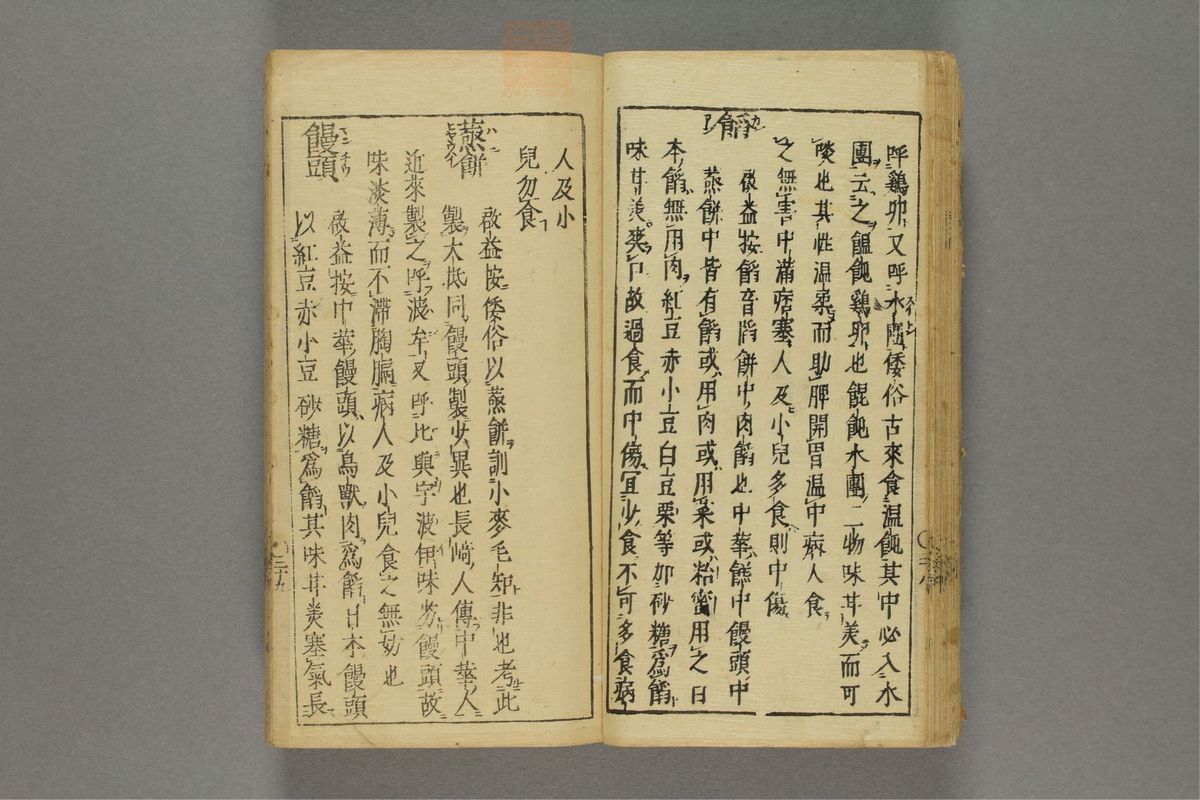 呼鷄卵又呼水團倭俗古來食温飩其中必入水
團云之饂飩鷄卵也餛飩水團二物味甘美而可
啖也其性温柔而助脾開胃温中病人食
之無害中滿痞塞人及小兒多食則中傷
餡
啟益按餡音陷餅中肉餡也中華餻中饅頭中
蒸餅中皆有餡或用肉或用菜或粘蜜用之日
本餡無用肉紅豆赤小豆白豆栗等加砂糖爲餡
味甘美爽口故過食而中傷宜少食不可多食病
人及小
兒勿食
蒸餅
啟益按倭俗以蒸餅訓小麥毛知非也考此
製大抵同饅頭製少異也長崎人傳中華人
近來製之呼波牟又呼比與宇波伊味劣饅頭故
味淡薄而不滯胸膈病人及小兒食之無妨也
饅頭
啟益按中華饅頭以鳥獸肉爲餡日本饅頭
以紅豆赤小豆砂糖爲餡其味甘美塞氣長